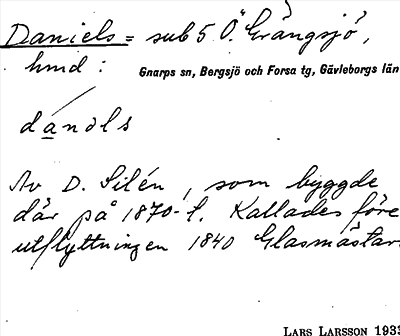 Daniels = sub 5 Ö. Grängsjö,
hmd :
Gnarps sn, Bergsjö och Forsa tg, Gävleborgs län
dan
Av D. Silén, som byggde
där på 1870-t. Kallades före
utflyttningen 1840 Glasmästar
LARS LARSSON 1933